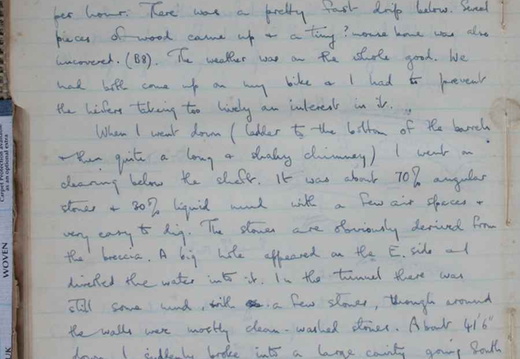 per hour. There was a pretty fast drip below. Several
pieces of wood came up & a tiny ? mouse bone was also
uncovered. (B8). The weather was on the whole good. We
had both come up on my bike & I had to prevent
the heifers taking too lively an interest in it.
When I went down (ladder to the bottom of the barrels
& then quite a long & shaky chimney) I went on
clearing below the shaft. It was about 70% angular
stones & 30% liquid mud with a few air spaces &
very easy to dig. The stones are obviously derived from
the breccia. A big hole appeared on the E. side and
diverted the water into it. In the tunnel there was
still some mud, with a few stones, though around
the walls were mostly clean-washed stones. About 41'6"
down I suddenly broke into a large cavity going South
Carpet Protection available
as an optional extra
WOVEN
UK